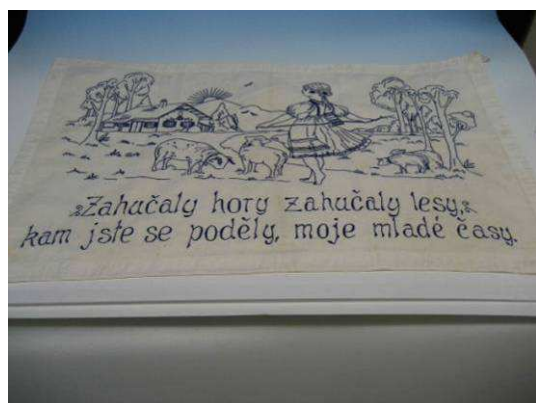 Zahučaly hory zahučaly lesy,
kam jste se poděly, moje mladé časy.